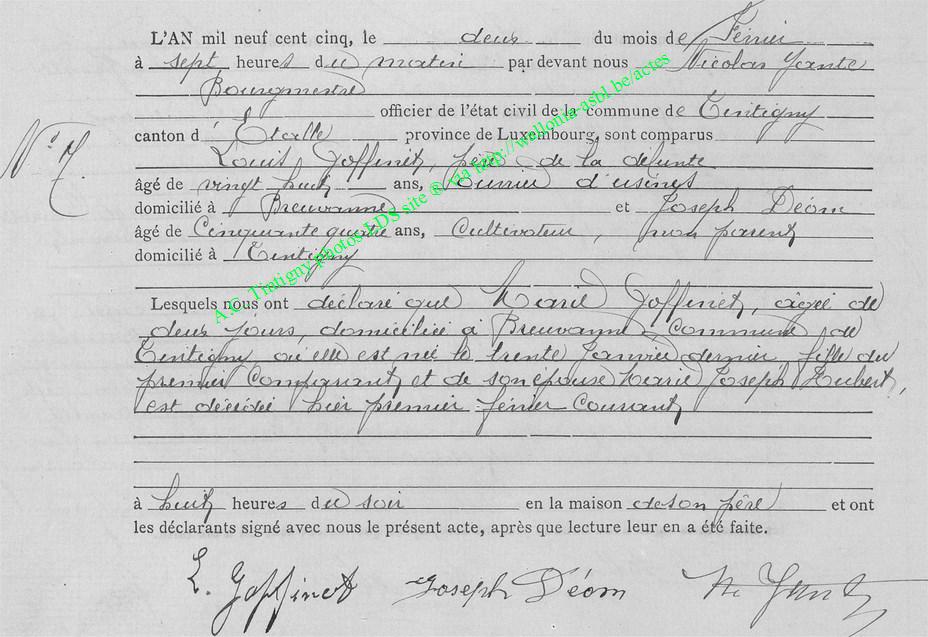 L'AN mil neuf cent cinq, le deux du mois de Février
à sept heures du matin par devant nous Nicolas
Bourgmestre
officier de l'état civil de la commune de Tintigny
canton d'Etalle province de Luxembourg, sont comparus
N° 7.
Louis Goffinet, père de la défunte
âgé de vingt huit ans, Ouvrier d'usines
domicilié à Breuvanne et Joseph Déom
âgé de Cinquante quatre ans, Cultivateur, non parent
domicilié à Tintigny
Lesquels nous ont déclaré que Marie Goffinet, âgée de
deux jours, domiciliée à Breuvanne Commune de
Tintigny, où elle est née le trente Janvier dernier, fille du
premier Comparant et de son épouse Marie Joseph Hubert,
est décédée hier premier février Courant
à huit heures du soir en la maison de son père et ont
les déclarants signé avec nous le présent acte, après que lecture leur en a été faite.
L. Goffinet Joseph Déom
A.C. Tintigny photos LDS site ® via http://wallonia-asbl.be/actes